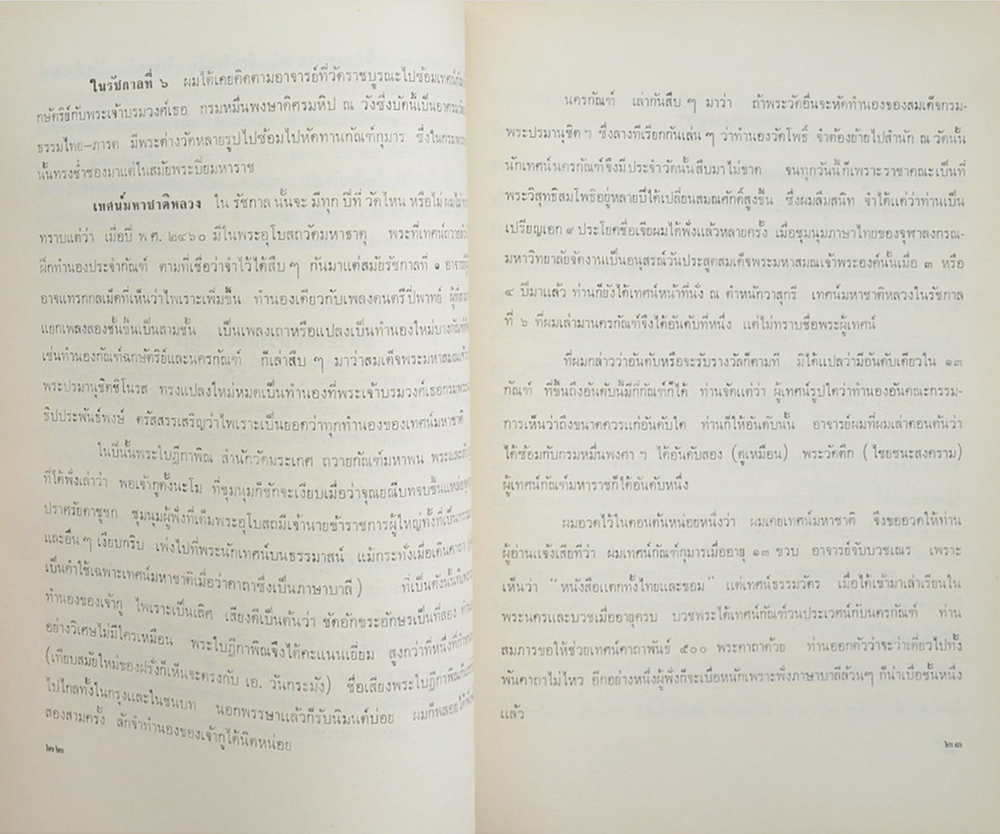 ในรัชกาลที่ ๖ ผมได้เคยติดตามอาจารย์ที่วัดราชบูรณะไปซ้อมเทศน์กัณ
กษัตริย์กับพระเจ้าบรมวงศ์เธอ กรมหมื่นพงษาดิศรมหิป ณ วังซึ่งบัดนี้เป็นอาศรม
ธรรมไทย–ภารต มีพระต่างวัดหลายรูปไปซ้อมไปหัดทานกัณฑ์กุมาร ซึ่งในกรม
นั้นทรงช่ำชองมาแต่ในสมัยพระปิ่มหาราช
เทศน์มหาชาติหลวง ใน รัชกาล นั้น จะ มี ทุก ปี ที่ วัด ไหน หรือไม่ ผมไม่
ทราบแต่ว่า เมื่อปี พ.ศ. ๒๔๖๐ มีในพระอุโบสถวัดมหาธาตุ พระที่เทศน์ถวาย
ฝึกทำนองประจำกัณฑ์ ตามที่เชื่อว่าจำไว้ได้สืบ ๆ กันมาแต่สมัยรัชกาลที่ ๑ อาจารย์
อาจแทรกกลเม็ดที่เห็นว่าไพเราะเพิ่มขึ้น ทำนองเดียวกับเพลงดนตรีปี่พาทย์ ผู้
แยกเพลงสองชั้นขึ้นเป็นสามชั้น เป็นเพลงเถาหรือแปลงเป็นทำนองใหม่บางกัณฑ์
เช่นทำนองกัณฑ์ฉกษัตริย์และนครกัณฑ์ ก็เล่าสืบ ๆ มาว่าสมเด็จพระมหาสมณเจ้า
พระปรมานุชิตชิโนรส ทรงแปลงใหม่หมดเป็นทำนองที่พระเจ้าบรมวงศ์เธอกรมพระ
ธิปประพันธ์พงษ์ ตรัสสรรเสริญว่าไพเราะเป็นยอดกว่าทุกทำนองของเทศน์มหาชาติ
ในปีนั้นพระใบฎีกาพิณ สำนักวัดมะระเกศ ถวายกัณฑ์มหาพน พระและ
ที่ได้ฟังเล่าว่า พอเจ้ากูตั้งนะโม ที่ชุมนุมก็ชักจะเงียบเมื่อว่าจุณยณีบทจบขึ้นแหล่
ปราศรัยตาชูชก ชุมนุมผู้ฟังที่เต็มพระอุโบสถมีเจ้านายข้าราชการผู้ใหญ่ทั้งที่เป็น
และอื่น ๆ เงียบกริบ เพ่งไปที่พระนักเทศน์บนธรรมาสน์ แม้กระทั่งเมื่อเดินคาถา
เป็นคำใช้เฉพาะเทศน์มหาชาติเมื่อว่าคาถาซึ่งเป็นภาษาบาลี ) ที่เป็นดังนั้นก็เพราะ
ทำนองของเจ้ากู ไพเราะเป็นเลิศ เสียงดีเป็นต้นว่า ชัดอักขระอักษรเป็นที่สอง
อย่างวิเศษไม่มีใครเหมือน พระใบฎีกาพิณจึงได้คะแนนเยี่ยม สูงกว่าที่หนึ่งที่
(เทียบสมัยใหม่ของฝรั่งก็เห็นจะตรงกับ เอ. วันกระมัง) ชื่อเสียงพระใบฎีกาพิณ
ไปไกลทั้งในกรุงและในชนบท นอกพรรษาแล้วก็รับนิมนต์บ่อย ผมก็พลอยได้
สองสามครั้ง ลักจำทำนองของเจ้ากูได้นิดหน่อย
๒๒
นครกัณฑ์ เล่ากันสืบ ๆ มาว่า ถ้าพระวัดอื่นจะหัดทำนองของสมเด็จกรม-
พระปรมานุชิต ฯ ซึ่งลางทีเรียกกันเล่น ๆ ว่าทำนองวัดโพธิ์ จำต้องย้ายไปสำนัก ณ วัดนั้น
นักเทศน์นครกัณฑ์จึงมีประจำวัดนั้นสืบมาไม่ขาด จนทุกวันนี้ก็เพราะราชาคณะเป็นที่
พระวิสุทธิสมโพธิอยู่หลายปีได้เปลี่ยนสมณศักดิ์สูงขึ้น ซึ่งผมลืมสนิท จำได้แต่ว่าท่านเป็น
เปรียญเอก ๙ ประโยคชื่อเจียผมได้ฟังแล้วหลายครั้ง เมื่อชุมนุมภาษาไทยของจุฬาลงกรณ-
มหาวิทยาลัยจัดงานเป็นอนุสรณ์วันประสูตสมเด็จพระมหาสมณเจ้าพระองค์นั้นเมื่อ ๓ หรือ
๔ ปีมาแล้ว ท่านก็ยังได้เทศน์หน้าที่นั่ง ณ ตำหนักวาสุกรี เทศน์มหาชาติหลวงในรัชกาล
ที่ ๖ ที่ผมเล่ามานครกัณฑ์จึงได้อันดับที่หนึ่ง แต่ไม่ทราบชื่อพระผู้เทศน์
ที่ผมกล่าวว่าอันดับหรือจะรับรางวัลก็ตามที มิได้แปลว่ามีอันดับเดียวใน ๑๓
กัณฑ์ ที่ขึ้นถึงอันดับนั้นมีกี่กัณฑ์ก็ได้ ท่านจัดแต่ว่า ผู้เทศน์รูปใดว่าทำนองอันคณะกรรม-
การเห็นว่าถึงขนาดควรแก่อันดับใด ท่านก็ให้อันดับนั้น อาจารย์ผมที่ผมเล่าตอนต้นว่า
ได้ซ้อมกับกรมหมื่นพงศา ฯ ได้อันดับสอง (ดูเหมือน) พระวัดตึก (ไชยชนะสงคราม)
ผู้เทศน์กัณฑ์มหาราชก็ได้อันดับหนึ่ง
ผมอวดไว้ในตอนต้นหน่อยหนึ่งว่า ผมเคยเทศน์มหาชาติ จึงขออวดให้ท่าน
ผู้อ่านแจ้งเสียทีว่า ผมเทศน์กัณฑ์กุมารเมื่ออายุ ๑๓ ขวบ อาจารย์จับบวชเณร เพราะ
เห็นว่า “หนังสือแตกทั้งไทยและขอม” แต่เทศน์ธรรมวัตร เมื่อได้เข้ามาเล่าเรียนใน
พระนครและบวชเมื่ออายุครบ บวชพระได้เทศน์กัณฑ์วนประเวศน์กับนครกัณฑ์ ท่าน
สมภารขอให้ช่วยเทศน์คาถาพันธ์ ๕๐๐ พระคาถาด้วย ท่านออกตัวว่าจะว่าเดี่ยวไปทั้ง
พันคาถาไม่ไหว อีกอย่างหนึ่งผู้ฟังก็จะเบื่อหนักเพราะฟังภาษาบาลีล้วนๆ ก็น่าเบื่อชั้นหนึ่ง
แล้ว
๒๓